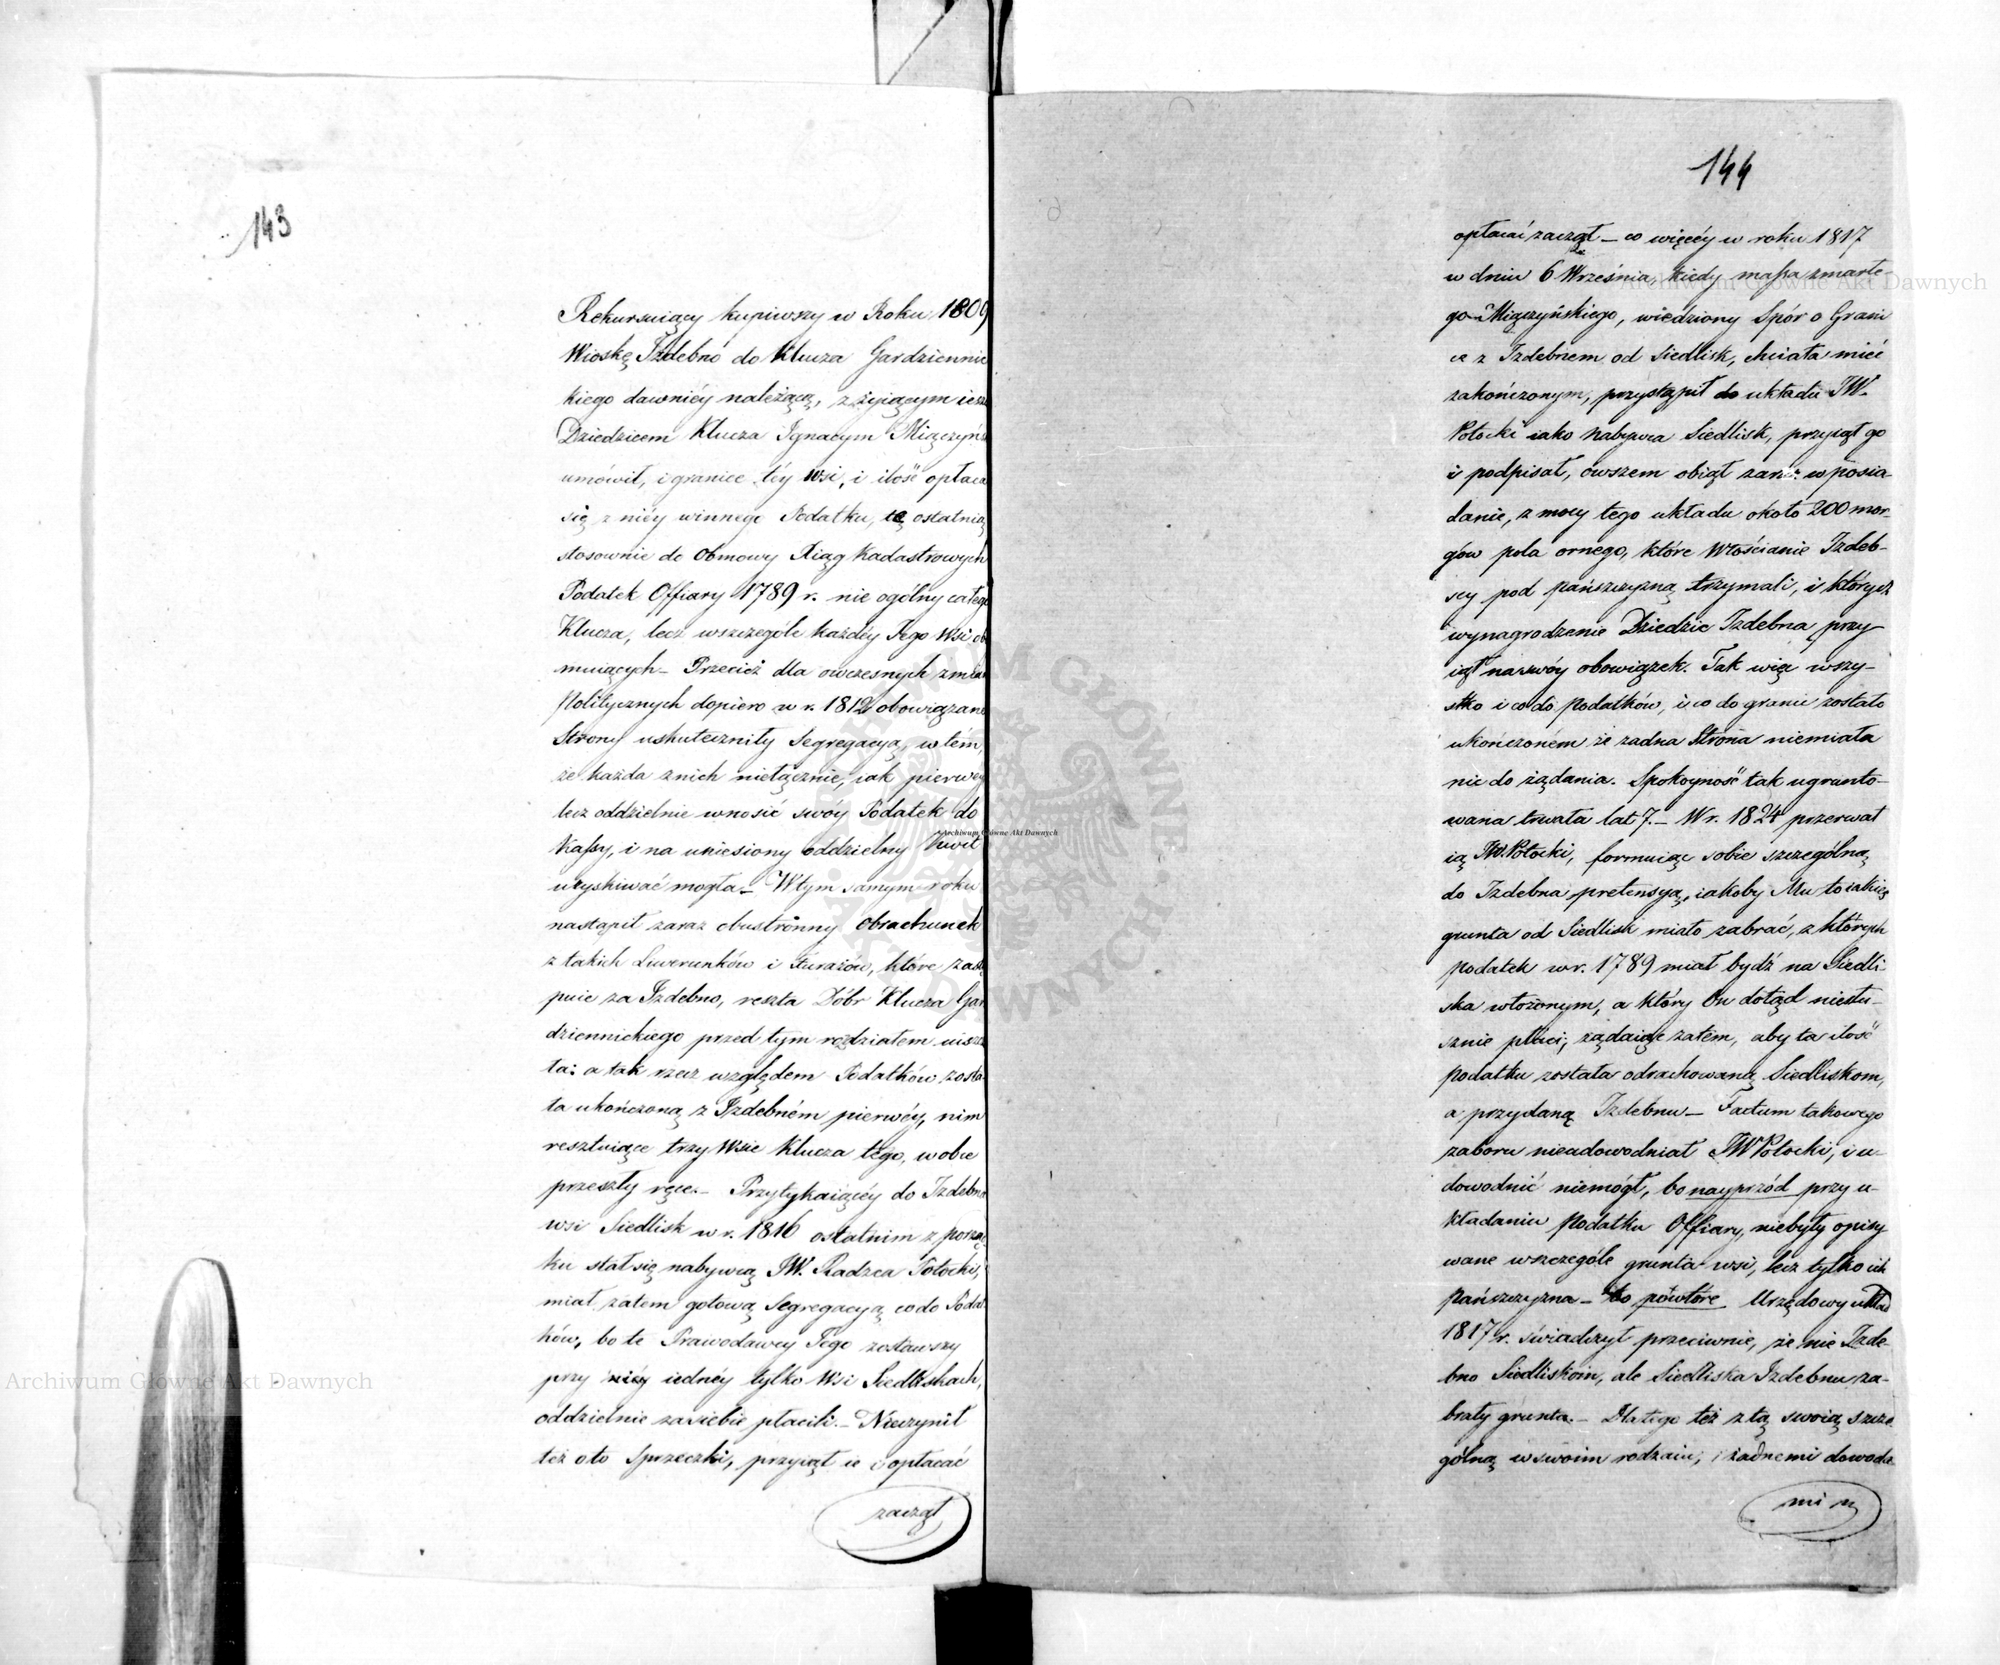 143
Rekursuiący kupiwszy w Roku 1809
Wioskę Izdebno do Klucza Gardziennic
kiego dawniéy należącą, z żyiącym iesz
Dziedzicem Klucza Ignacym Miączyńs
umówił, i granice téy Wsi, i ilość opłaca
się z niéy winnego Podatku, tę ostatnią
stosownie do Obmowy Xiąg Kadastrowych
Podatek Offiary 1789 r. nie ogólny całego
Klucza, lecz wszczególe każdéy Jego Wsi ob
muiących – Przecież dla owczesnych zmian
Politycznych dopiero w r. 1812 obowiązane
Strony uskuteczniły Segregacyą, w tém,
że każda z nich niełącznie, iak pierwéy
lecz oddzielnie wnosić swóy Podatek do
Kassy, i na uniesiony oddzielny Kwit
uzyskiwać mogła – W tym samym roku
nastąpił zaraz obustronny Obrachunek
z takich Liwerunków i Furażów, które zastę
puie za Izdebno, reszta Dóbr Klucza Gar
dziennickiego przed tym rozdziałem uiszcza
ła: a tak rzecz względem Podatków zosta
ła ukończoną z Izdebném pierwéy, nim
resztuiące trzy Wsie Klucza tego, w obce
przeszły ręce. – Przytykaiącéy do Izdebna
wsi Siedlisk w r. 1816 ostatnim z porząd
ku stał się nabywcą JW. Radzca Potocki,
miał zatem gotową Segregacyą co do Podat
ków, bo te Prawodawcy Jego zostawszy
przy iednéy tylko Wsi Siedliskach,
oddzielnie za siebie płacili. – Nieczynił
téż o to Sprzeczki, przyiął ie i opłacać
zaczął
144
opłacać zaczął – co więcéy w roku 1817
w dniu 6 Września, kiedy massa zmarłe-
go Miączyńskiego, wiedziony Spór o Grani
ce z Izdebnem od Siedlisk, chciała mieć
zakończonym, przystąpił do układu JW.
Potocki iako Nabywca Siedlisk, przyiął go
i podpisał, owszem obiął zaraz w posia
danie, z mocy tego układu około 200 mor-
gów pola ornego, które Włościanie Izdeb-
scy pod pańszczyzną trzymali, i których
wynagrodzenie Dziedzic Izdebna przy
iął na swóy obowiązek. Tak więc wszy-
stko i co do Podatków, i co do granic zostało
ukończoném że żadna Strona niemiała
nic do żądania. Spokoyność tak ugrunto-
wana trwała lat 7. – W r. 1824 przerwał
ią JW. Potocki, formuiąc sobie szczególną
do Izdebna pretensyą, iakoby Mu to iakieś
grunta od Siedlisk miało zabrać, z których
podatek w r. 1789 miał bydź na Siedli
ska włożonym, a który On dotąd niesłu-
sznie płaci; żądaiąc zatém, aby ta ilość
podatku została odrachowaną Siedliskom,
a przydaną Izdebnu – Factum takowego
zaboru nieudowodniał JW Potocki, i u-
dowodnić niemógł, bo nayprzód przy u-
kładaniu Podatku Offiary, niebyły opisy
wane wszczególe grunta wsi, lecz tylko ich
Pańszczyzna – bo powtóre Urzędowy układ
1817 r. świadczył przeciwnie, że nie Izde-
bno Siedliskom, ale Siedliska Izdebnu za-
brały grunta. – Dlatego téż z tą swoią szcze
gólną w swoim rodzaiu, i żadnemi dowoda
mi n
Archiwum Główne Akt Dawnych
Archiwum Główne Akt Dawnych
Archiwum Główne Akt Dawnych
ARCHIWUM GŁÓWNE AKT DAWNYCH